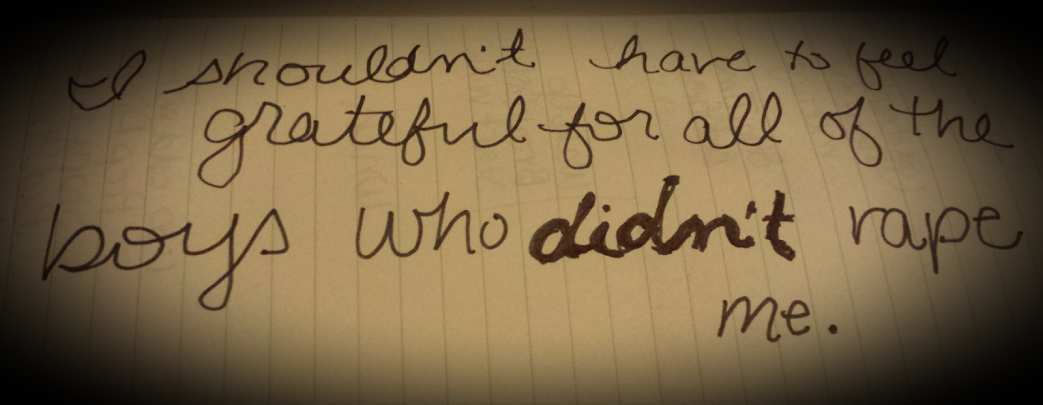 I shouldn't have to feel
grateful for all of the
boys who didn't rape
me.